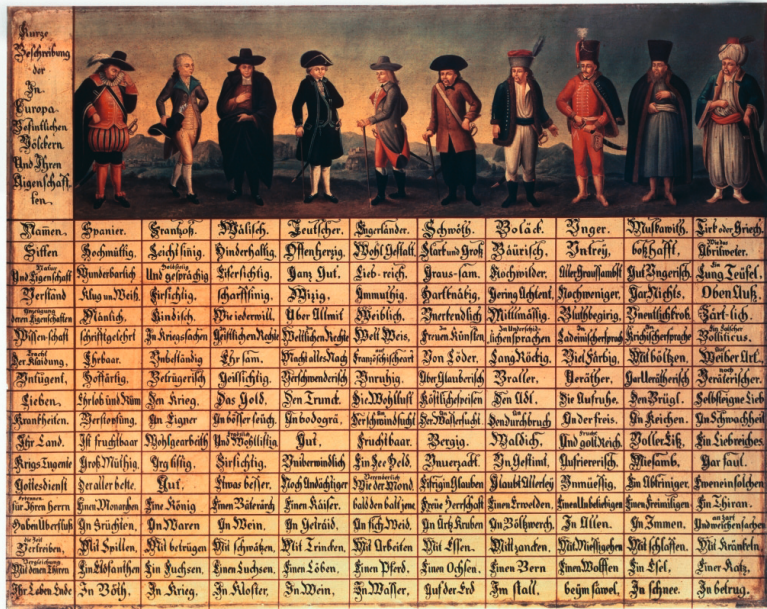 Kurze
Beschreibung
der
In
Europa
Befintlichen
Völckern
Und Ihren
Aigenschaff-
ten.
Namen. Spanier. Frantzoß. Wälisch. Teutscher. Engerländer. Schwöth. Boläck. Vnger. Muskawith. Tirk oder Griech.
Sitten Hochmüttig. Leichtsinig. Hinderhaltig. Offenherzig. Wohl Gestalt. Starck und Groß Bäurisch. Vntrey. boßhafft. Wie das Abrilweter.
Natur Und Eigenschaft Wunderbarlich Und gesprächig Eifersichtig. Ganz Gut. Lieb-reich. Graus-sam. Nochwilder. Aller Grausambst. Gut Vngerisch. Ein Lung Teüfel.
Verstand Klug un Weiß. Firsichtig. scharffsinig. Wizig. Anmuthig. Hartknäkig. Gering Achtent. Nochweniger. Gar Nichts. Oben Auß.
deren Eigenschaften Mänlich. Kindisch. Wie iederwill. Über Allmit Weiblich. Vnerkendlich Mittlmässig. Bluthbegirig. Vnentlich krob. Zärt-lich.
Wissenschaft schrifftgelehrt In Kriegssachen Geistlichen Rechte Weltlichen Rechte Welt Weis. In Freuen Künsten In Underschid-lichen sprachen In Ladeinischer sprach In Krichischer sprache Ein Falscher Bolliticus.
Tracht Der Klaidung. Ehrbaar. Unbeständig Ehrsam. Macht alles Nach Französchischeart Von Löder. Lang Röckig. Viel Färbig. Mit böltzen. Auf Weiber Art.
Untugent. Hoffärtig. Betrügerisch Geilsichtig. Verschwenderisch Vnruhig. Über Glauberisch Braller. Veräther. Gar Verätherisch Noch Veräterischer.
Lieben. Ehrlob und Rüm Den Krieg. Das Gold. Den Trunck. Die Wohllust Köstlichespeisen Den Adl. Die Aufruhe. Den Brügl. Selbsteigne Lieb
Krankheiten. Verstopfung. An Eigner An böser seüch. An bodogrä. Der schwindsucht Der Wassersucht Den durchbruch An der freis. An Keichen. An Schwachheit
Ihr Land. Ist fruchtbaar Wohlgearbeith Und Wohllistig Gut. Fruchtbaar. Bergig. Waldich. Und gold Reich. Voller Eiß. Ein Liebreiches
Krigs Tugente Groß Müthig. Arg listig. Firsichtig. Vniberwindlich Ein See Held. Vnverzackt. Un Gestimt. Aufriererisch. Miesamb. Gar faul.
Gottesdienst Der aller beste. Gut. Etwas besser. Noch Andächtiger Wie der Mond. Eifrig in Glauben Glaubt Allerley Unmüessig. Ein Abtriniger. Eweneinsolchen
für Ihren Herrn Einen Monarchen Eine König Einen Baterärch Einen Kaiser. bald den balt jene Freüe Herrschaft Einen Erwelden. Einen Unbeliebigen Einen Freimilligen Ein Thiran.
Haben Überfluß An Früchten. An Waren An Wein. An Getraid. An fich Weid. An Ärtz Kruben An Böltzwerch. In Allen. An Immen. Und weichen sachen
die Zeit Vertreiben. Mit Spillen. Mit betrügen Mit schwätzen. Mit Trincken. Mit Arbeiten Mit Essen. Mit zancken. Mit Miessigehen Mit schlaffen. Mit Kränkeln.
Vergleichung Mit denen Thiren Ein Elofanthen Ein Fuchsen. Einen Luchsen. Einen Löben. Einen Pferd. Einen Ochsen. Einen Bern Einen Wolffen Ein Esel. Einer Katz.
Ihr Leben Ende In Böth. In Krieg. In Kloster. In Wein. In Wasser. Auf der Erd Im stall. beym säwel. In schnee. In betrug.